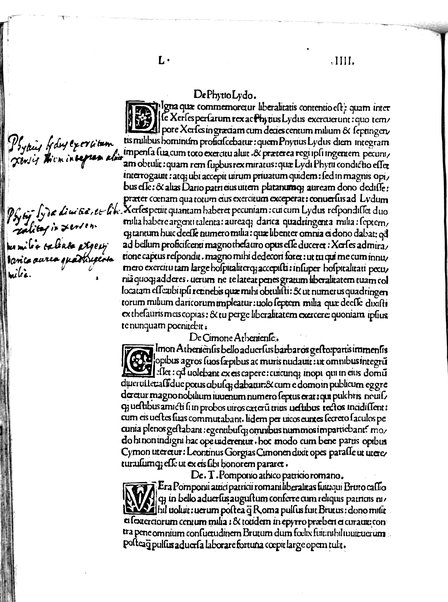 L. .IIII.
De Phytio Lydo.
Digna quæ commemoretur liberalitatis contentio est; quam inter
se Xerses persarum rex ac Phytius Lydus exercuerunt: quo tem
pore Xerses in græciam cum decies centum milium & septingen
tis milibus hominum proficiscebatur: quem Phytius Lydus diem integram
impensa sua cum toto exercitu aluit. & præterea regi ipsi ingentem pecuni/
am obtulit: quam rem supbus rex miratus: quæ Lydi Phytii conditio esset
interrogauit: atq; ubi accepit uirum priuatum quidem: sed in magnis opi/
bus esse: & alias Dario patri eius uitem platanumq; auream dono dedisse:
præter cœnam qua totum eius exercitum excepeat: conuersus ad Lydum
Xerses petit quantam haberet pecuniam: cui cum Lydus respondisset duo
milia habere argenti talenta: aureaq; darica quadringenta milia: septem
q; tantum huic deesse numero milia: quæ libenter omnia ei dono dabat: q
ad bellum proficiscenti magno thesauro opus esse duceret: Xerses admira
tione captus respondit. magno mihi dedecori foret: ut tu qui me cum innu/
mero exercitu tam large hospitaliterq; accepisti: insuper hospitalitati pecu
nia quoq; adderes. uerum ne te lateat penes gratum liberalitatem tuam col
locatam esse: tibi ipsi retinebis quæ mihi obtulisti: & ut numerus quadringen
torum milium daricorum impleatur: uolo septem milia quæ deesse duxisti
ex thesauris meis capias: & tu perge liberalitatem exercere: quoniam ipsius
te nunquam pœnitebit.
De Cimone Atheniense.
Cimon Atheniensis bello aduersus barbaros gesto partis immensis
opibus agros suos sæpibus ac muris nudauit: ut omnibus integrum
esset: q uolebant ex his capere:
deretur magno nobilium iuuenum numero septus erat: qui pulchris neuis/
q; uestibus amicti si in probos uiros cætera tritis uestibus tectos incidissent:
cum eis uestes suas commutabant. Iidem per uicos euntes secreto saculos pe
cunia plenos gestabant: egentibusq; omnibus nummos impartiebant: mo/
do hi non indigni hac ope uiderentur. hoc modo cum bene partis opibus
Cymon uteretur: Leontinus Gorgias Cimonem dixit opes parasse ut utere/
tur: usumq; esse ut ex eis sibi honorem pararet.
De. T. Pomponio athico patricio romano.
VVEra Pomponii attici patricii romani liberalitas fuit: qui Bruto cassio
q; in bello aduersus augustum conferre cum reliquis patriciis ni/
hil uoluit: uerum postea q Roma pulsus fuit Brutus: dono misit
ei sextertiorum centum milia: & totidem in epyrro præberi ei curauit: con
tra pene omnium consuetudinem Brutum dum fœlix fuit nihil iuuit: uerum
postea q pulsus aduersa laborare fortuna cœpit large opem tulit.
Phytius lydus exercitum
xersis diem integram aluit
Phytij lydi diuitiæ, et lib
ralitas in xersem
milia talenta argenti
darica aurea quadringenta
milia.